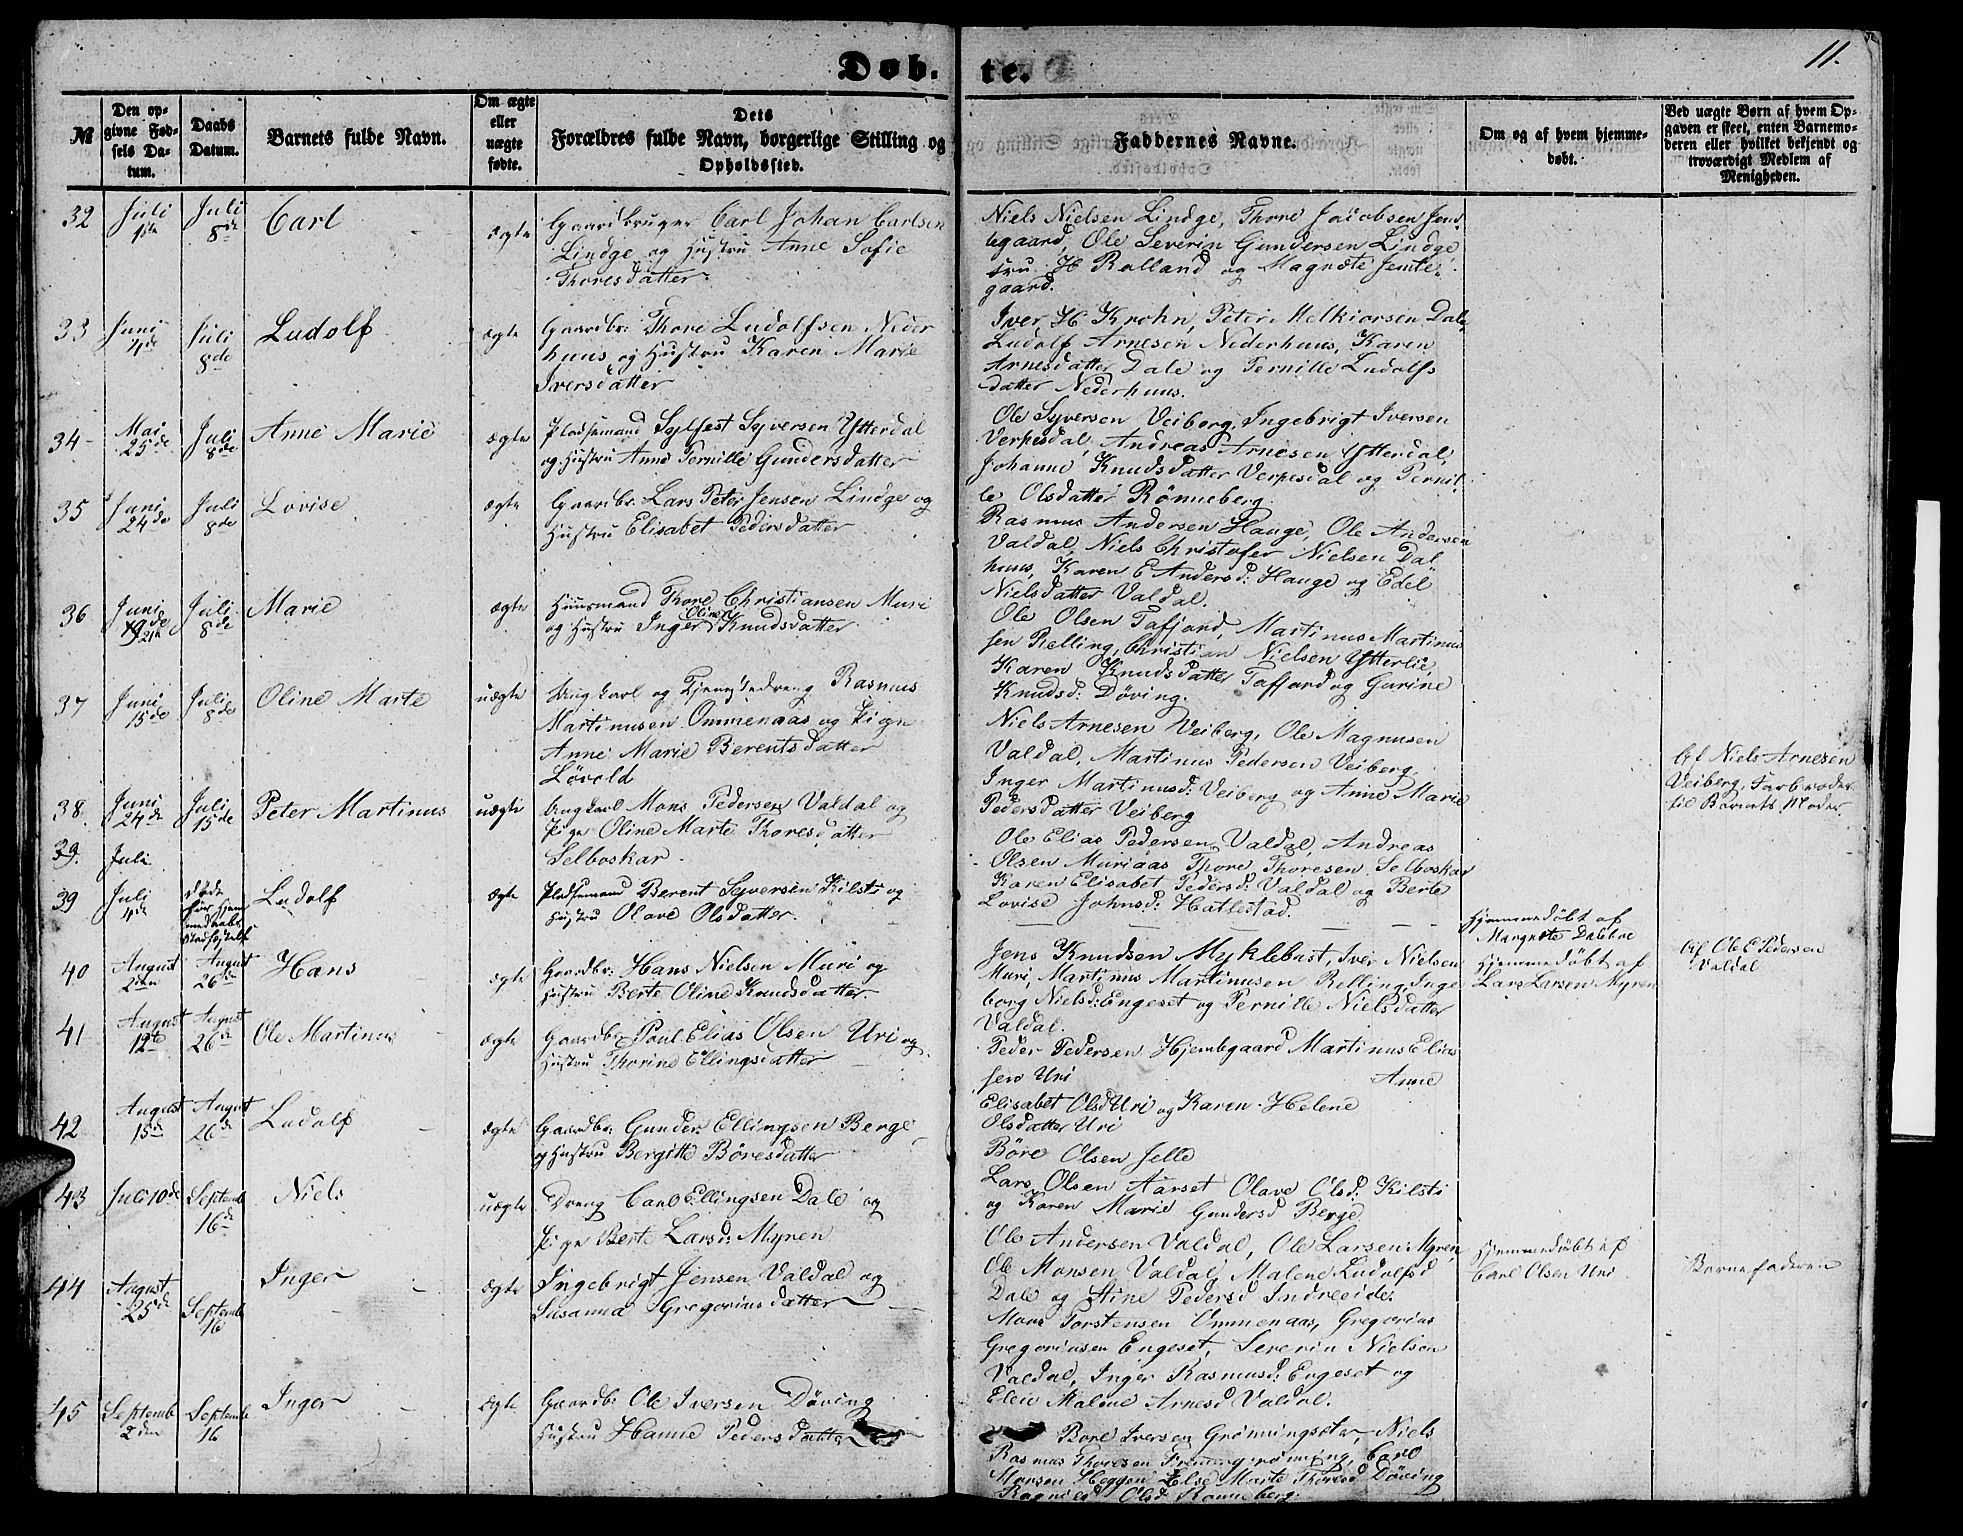 11.
Døb-
te.
№
Den op-
givne Fød-
sels Da-
tum.
Daabs
Datum.
Barnets fulde Navn.
Om ægte
eller
uægte
fødte.
Dets
Forældres fulde Navn, borgerlige Stilling og
Opholdssted.
Faddernes Navne.
Om og af hvem hjemme-
døbt.
Ved uægte Børn af hvem Op-
gaven er skeet, enten Barnemo-
deren eller hvilket bekjendt og
troværdigt Medlem af
Menigheden.
32
Juli
1ste
Juli
8de
Carl
ægte
Gaardbruger Carl Johan Carlsen
Lindge og Hustru Anne Sofie
Thoresdatter
Niels Nielsen Lindge, Thore Jacobsen Jem-
tegaard, Ole Severin Gundersen Lindge
fru H Rolland og Magnete Jemte-
gaard.
33
Juni
4de
Juli
8de
Ludolf
ægte
Gaardbr: Thore Ludolfsen Neder
huus og Hustru Karen Marie
Iversdatter
Iver H Krohn, Peter Melkiorsen Dale
Ludolf Arnesen Nederhuus, Karen
Arnesdatter Dale og Pernille Ludolfs
datter Nederhuus.
34
Mai
25de
Juli
8de
Anne Marie
ægte
Pladsemand Sylfest Syversen Ytterdal
og Hustru Anne Pernille Gundersdatter
Ole Syversen Veiborg, Ingebrigt Iversen
Verpesdal, Andreas Arnesen Ytterdal,
Johanne Knudsdatter Verpesdal og Pernil-
le Olsdatter Rønneberg.
35
Juni
24de
Juli
8de
Lovise
ægte
Gaardbr: Lars Peter Jensen Lindge og
Hustru Elisabet Pedersdatter
Rasmus Andersen Hauge, Ole Andersen
Valdal, Niels Christofer Nielsen Dal-
huus, Karen E Andersd: Hauge og Edel
Nielsdatter Valdal.
36
Juni
21de
Juli
8de
Marie
ægte
Huusmand Thore Christiansen Muri
og Hustru Inger Oline Knudsdatter
Ole Olsen Tafjord, Martinus Martinus
sen Relling, Christian Nielsen Ytterlie,
Karen Knudsdatter Tafjord og Gurine
Knudsd: Døving.
37
Juni
15de
Juli
8de
Oline Marte
uægte
Ungkarl og Tjenestedreng Rasmus
Martinusen Ommenaas og Pige
Anne Marie Berentsdatter
Løvold
Niels Arnesen Veiberg, Ole Magnusen
Valdal, Martinus Pedersen Veiberg,
Inger Martinusd: Veiberg og Anne Marie
Pedersdatter Veiberg
Af Niels Arnesen
Veiberg, Farbroder
til Barnets Moder
38.
Juni
24de
Juli
15de
Peter Martinus
uægte
Ungkarl Mons Pedersen Valdal og
Pige Oline Marte Thoresdatter
Selboskar
Ole Elias Pedersen Valdal, Andreas
Olsen Muriaas Thore Thoresen Selboskar
Karen Elisabet Pedersd: Valdal og Berte
Lovise Johnsd: Hatlestad.
39.
Juli
39
Juli
4de
døde
før Hjem
medaabs
Stadfæstelse
Ludolf
ægte
Pladsemand Berent Syversen Kilsti og
Hustru Olave Olsdatter.
Hjemmedøbt af
Margrete Dalebøe
40
August
2den
August
26de
Hans
ægte
Gaardbr: Hans Nielsen Muri og
Hustru Berte Oline Knudsdatter.
Jens Knudsen Myklebust, Iver Nielsen
Muri, Martinus Martinusen Relling, Inge
borg Nielsd: Engeset og Pernille Nielsdatter
Valdal.
Hjemmedøbt af
Lars Larsen Myren
Af Ole E Pedersen
Valdal
41
August
12te
August
26de
Ole Martinus
ægte
Gaardbr: Poul Elias Olsen Uri og
Hustru Thorine Ellingsdatter
Peder Pedersen Hjembgaard Martinus Elias
sen Uri Anne
Elisabet Olsd Uri og Karen Helene
Olsdatter Uri
42
August
15de
August
26de
Ludolf
ægte
Gaardbr: Gunder Ellingsen Berge
og Hustru Bergitte Børesdatter
Børe Olsen Selle
Lars Olsen Aarset Olave Olsd: Kilsti
og Karen Marie Gundersd Berge
43
Juli 10de
Septemb
16de
Niels
uægte
Dreng Carl Ellingsen Dale og
Pige Berte Larsd: Myren
Ole Andersen Valdal, Ole Larsen Myren,
Ole Monsen Valdal, Malene Ludolfsd
Dale og Stine Pedersd Indreeide.
Hjemmedøbt af
Carl Olsen Uri
Barnefaderen
44
August
25de
Septemb
16
Inger
ægte
Ingebrigt Jensen Valdal og
Susanna Gregoriusdatter
Mons Torstensen Ommenaas, Gregorius
Gregoriusen Engeset, Severin Nielsen
Valdal, Inger Rasmusd: Engeset og
Elen Malene Arnesd Valdal.
45
Septemb
2den
Septemb
16
Inger
ægte
Gaardb: Ole Iversen Døving
Hustru Hanne Pedersdatter
Bore Iversen Grønningsæter, Niels
Rasmus Thoresen Carl
Monsen Heggen Else Marte Thoresd Døving
Ragnild Olsd Rønneberg.